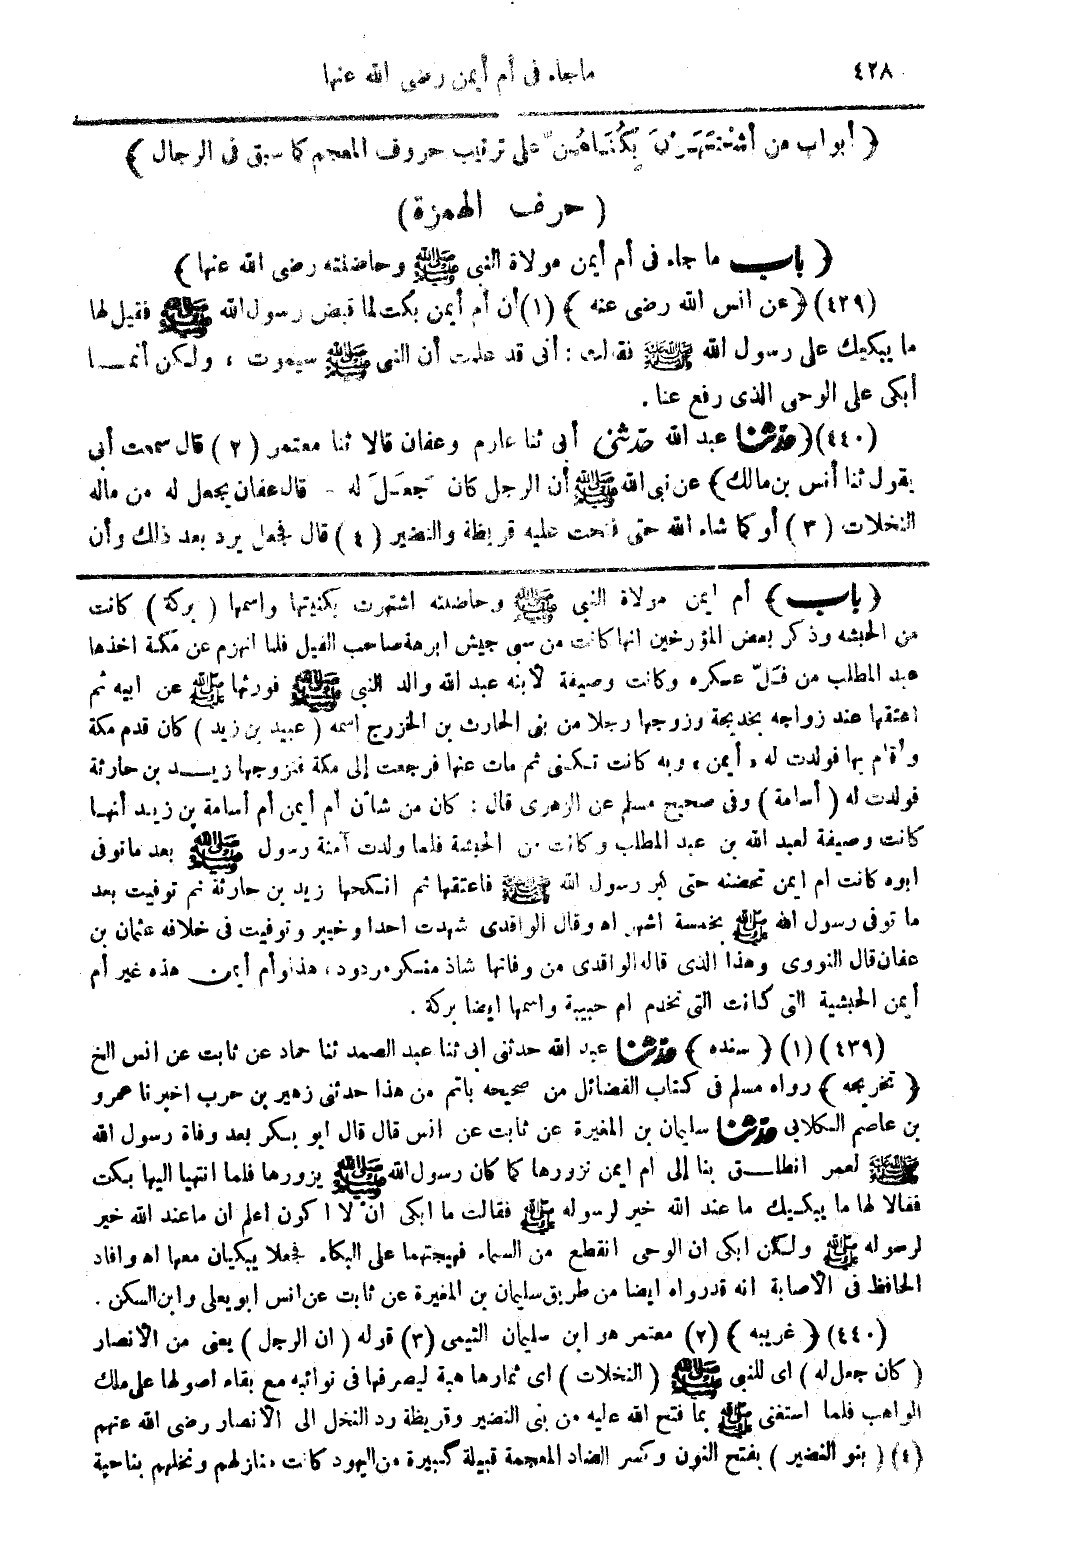 ٤٢٨ ما جاء فى أم أيمن رضى الله عنها
﴿ أبواب من أشتهرن بكناهن على ترتيب حروف المعجم كما سبق فى الرجال ﴾
( حرف الهمزة )
﴿ باب ما جاء فى أم أيمن مولاة النبى ﷺ وحاضنته رضى الله عنها ﴾
(٤٣٩) ﴿ عن انس الله رضى عنه ﴾ (١) أن أم أيمن بكت لما قبض رسول الله ﷺ فقيل لها
ما يبكيك على رسول الله ﷺ فقالت : أنى قد علمت أن النبى ﷺ سيموت ، ولكن أنمـا
أبكى على الوحى الذى رفع عنا .
(٤٤٠) ﴿ حدثنا عبد الله حدثنى أبى ثنا عارم وعفان قالا ثنا معتمر (٢) قال سمعت أبى
يقول ثنا أنس بن مالك ﴾ عن نبى الله ﷺ أن الرجل كان جعل له - قال عفان يجعل له من ماله
النخلات (٣) أو كما شاء الله حتى فتحت عليه قريظة والنضير (٤) قال فجعل يرد بعد ذلك وأن
﴿ باب ﴾ أم ايمن مولاة النبى ﷺ وحاضنته اشتهرت بكنيتها واسمها ( بركة ) كانت
من الحبشه وذكر بعض المؤرخين انها كانت من سبى جيش ابرهة صاحب الفيل فلما انهزم عن مكة اخذها
عبد المطلب من فل عسكره وكانت وصيفة لابنه عبد الله والد النبى ﷺ فورثها ﷺ عن ابيه ثم
اعتقها عند زواجه بخديجة وزوجها رجلا من بنى الحارث بن الخزرج اسمه ( عبيد بن زيد ) كان قدم مكة
وأقام بها فولدت له ، أيمن ، وبه كانت تكنى ثم مات عنها فرجعت إلى مكة فتزوجها زيـد بن حارثة
فولدت له ( أسامة ) وفى صحيح مسلم عن الزهرى قال : كان من شأن أم أيمن أم أسامة بن زيد أنهـا
كانت وصيفة لعبد الله بن عبد المطلب وكانت من الحبشة فلما ولدت آمنة رسول ﷺ بعد ما توفى
ابوه كانت ام ايمن تحضنه حتى كبر رسول الله ﷺ فاعتقها ثم انكحها زيد بن حارثة ثم توفيت بعد
ما توفى رسول الله ﷺ بخمسة اشهر اه وقال الواقدى شهدت احدا وخيبر وتوفيت فى خلافه عثمان بن
عفان قال النووى وهذا الذى قاله الواقدى من وفاتها شاذ منكر مردود ، هذا وأم أيمن هذه غير أم
أيمن الحبشية التى كانت التى تخدم ام حبيبة واسمها ايضا بركة .
(٤٣٩) (١) ﴿ سنده ﴾ حدثنا عبد الله حدثنى ابى ثنا عبد الصمد ثنا حماد عن ثابت عن انس الخ
﴿ تخريجه ﴾ رواه مسلم فى كتاب الفضائل من صحيحه باتم من هذا حدثنى زهير بن حرب اخبرنا عمرو
بن عاصم الكلابى حدثنا سليمان بن المغيرة عن ثابت عن انس قال قال ابو بكر بعد وفاة رسول الله
ﷺ لعمر انطلـق بنا إلى ام ايمن نزورها كما كان رسول الله ﷺ يزورها فلما انتهيا اليها بكت
فقالا لها ما يبكيك ما عند الله خير لرسوله ﷺ فقالت ما ابكى ان لا اكون اعلم ان ما عند الله خير
لرسوله ﷺ ولكن ابكى ان الوحى انقطع من السماء فهيجتهما على البكاء فجعلا يبكيان معها اه وافاد
الحافظ فى الاصابة انه قد رواه ايضا من طريق سليمان بن المغيرة عن ثابت عن انس ابو يعلى وابن السكن .
(٤٤٠) ﴿ غريبه ﴾ (٢) معتمر هو ابن سليمان التيمى (٣) قوله ( ان الرجل ) يعنى من الانصار
( كان جعل له ) اى للنبى ﷺ ( النخلات ) اى ثمارها هبة ليصرفها فى نوائبه مع بقاء اصولها على ملك
الواهب فلما استغنى ﷺ بما فتح الله عليه من بنى النضير وقريظة رد النخل الى الانصار رضى الله عنهم
(٤) ( بنو النضير ) بفتح النون وكسر الضاد المعجمة قبيلة كبيرة من اليهود كانت منازلهم ونخلهم بناحية